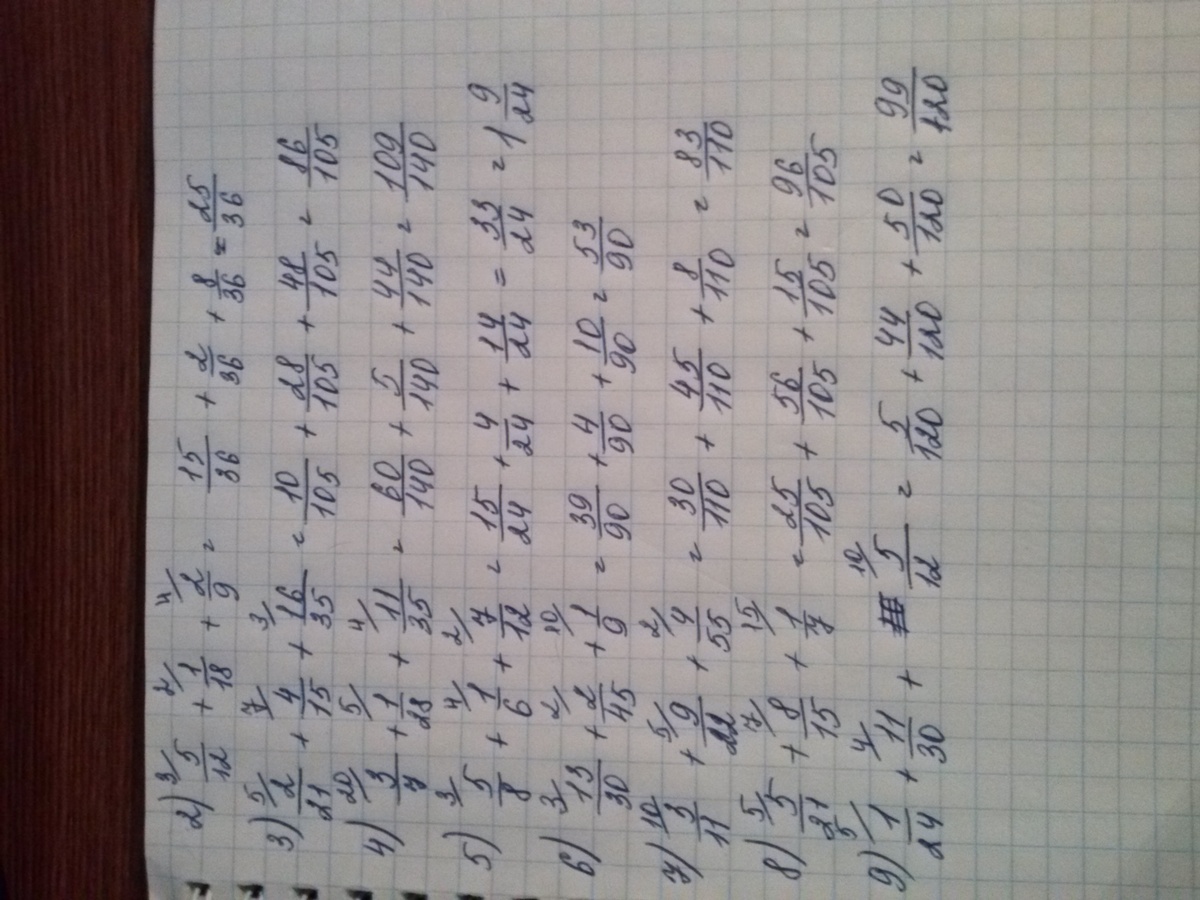 2) 5/12 (3/ + 1/18 (2/ + 2/9 (4/ = 15/36 + 2/36 + 8/36 = 25/36
3) 2/21 (5/ + 4/15 (7/ + 16/35 (3/ = 10/105 + 28/105 + 48/105 = 86/105
4) 3/7 (20/ + 1/28 (5/ + 11/35 (4/ = 60/140 + 5/140 + 44/140 = 109/140
5) 5/8 (3/ + 1/6 (4/ + 7/12 (2/ = 15/24 + 4/24 + 14/24 = 33/24 = 1 9/24
6) 13/30 (3/ + 2/45 (2/ + 1/9 (10/ = 39/90 + 4/90 + 10/90 = 53/90
7) 3/11 (10/ + 9/22 (5/ + 4/55 (2/ = 30/110 + 45/110 + 8/110 = 83/110
8) 5/21 (5/ + 8/15 (7/ + 1/7 (15/ = 25/105 + 56/105 + 15/105 = 96/105
9) 1/24 (5/ + 11/30 (4/ + 5/12 (10/ = 5/120 + 44/120 + 50/120 = 99/120